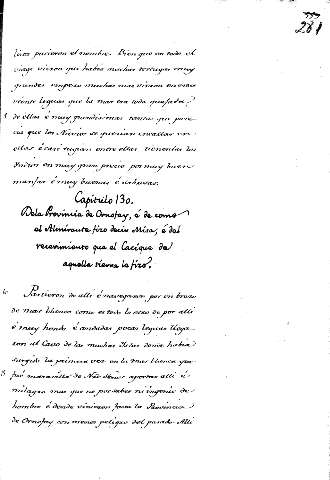 281
lotas pusieron el nombre. Bien que en todo el
viage vieron que habia muchas tortugas muy
grandes empero muchas mas vieron en estas
veinte leguas que la mar era toda quajada
de ellas é muy grandisimas tantas que pare
cia que los Navios se querian encallar en
ellas é casi rugian entre ellas tienenlas los
Indios en muy gran precio por muy buen
manjar é muy buenas é sabrosas.
Capitulo 130.
De la Provincia de Ornofay, é de como
el Almirante fizo decir Misa, é del
recevimiento que el Cacique de
aquella tierra le fizo.
Partieron de alli é navegaron por un brazo
de mar blanco como es todo lo otro de por alli
é muy hondo é andadas pocas leguas llega
ron al Cavo de las muchas Islas donde habia
surgido la primera vez en la mar blanca que
fué maravilla de Ntro Señor aportar alli é
milagro mas que no por saber ni ingenio de
hombre é donde vinieron fasta la Provincia
de Ornofay con menos peligro del pasado Alli